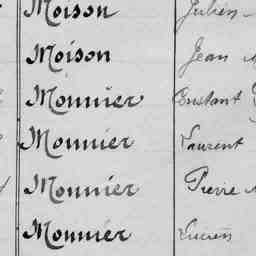 Moison Julien
Moison Jean
Monnier Constant
Monnier Laurent
Monnier Pierre
Monnier Lucien